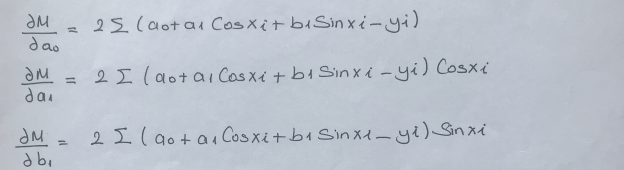 ∂M/∂a₀ = 2 Σ (a₀+a₁ Cosxi + b₁Sinxi − yi)
∂M/∂a₁ = 2 Σ (a₀+a₁Cosxi + b₁Sinxi − yi) Cosxi
∂M/∂b₁ = 2 Σ (a₀+a₁Cosxi + b₁Sinxi − yi) Sinxi